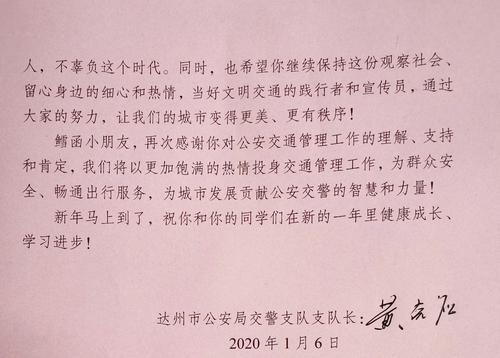 人，不辜负这个时代。同时，也希望你继续保持这份观察社会、
留心身边的细心和热情，当好文明交通的践行者和宣传员，通过
大家的努力，让我们的城市变得更美、更有秩序！
鳕函小朋友，再次感谢你对公安交通管理工作的理解、支持
和肯定，我们将以更加饱满的热情投身交通管理工作，为群众安
全、畅通出行服务，为城市发展贡献公安交警的智慧和力量！
新年马上到了，祝你和你的同学们在新的一年里健康成长、
学习进步！
达州市公安局交警支队支队长：黄
2020 年 1 月 6 日